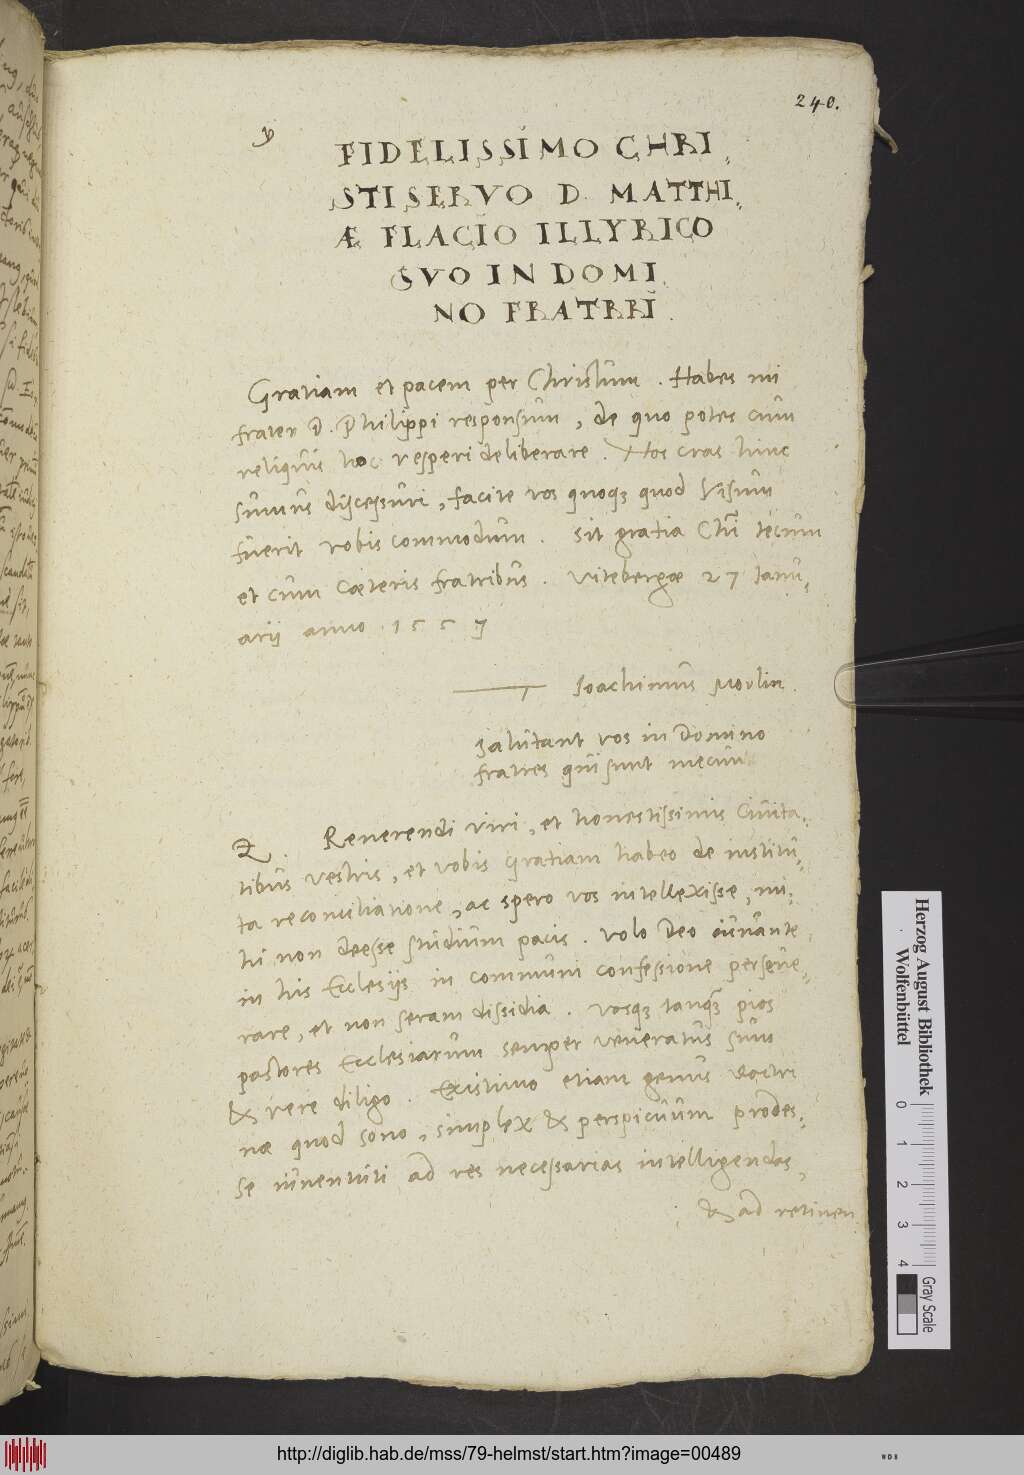 240.
y
FIDELISSIMO CHRI,
STI SERVO D. MATTHI,,
Æ FLACIO ILLYRICO
SVO IN DOMI
NO FRATRRI.
Gratiam et pacem per Christum. Habes mi
frater D. Philippi responsum, de quo potes cum
reliquis hoc vesperi deliberare. Nos cras hinc
sumus discessuri, facite vos quoqȝ quod visum
fuerit vobis commodum. Sit gratia Chri tecum
et cum cæteris fratribus. Vitebergæ 27 Janu,,
arij anno 1557
Joachimus Morlin.
Salutant vos in Domino
fratres qui sunt mecum
Z. Reverendi viri, et honestissimis Civita,,
tibus vestris, et vobis gratiam habeo de institu,,
ta reconciliatione, ac spero vos intellexisse, mi,,
hi non deesse studium pacis. Volo Deo iuvante
in his Ecclesijs in communi confessione perseve,,
rare, et non seram dissidia. Vosqȝ tanqȝ pios
pastores Ecclesiarum semper veneratus sum
& vere diligo. Existimo etiam genus doctri
næ quod sono, simplex & perspicuum prodes,,
se iuventuti ad res necessarias intelligendas,
& ad retinen
Herzog August Bibliothek
Wolfenbüttel
0 1 2 3 4
Gray Scale
http://diglib.hab.de/mss/79-helmst/start.htm?image=00489
WDB